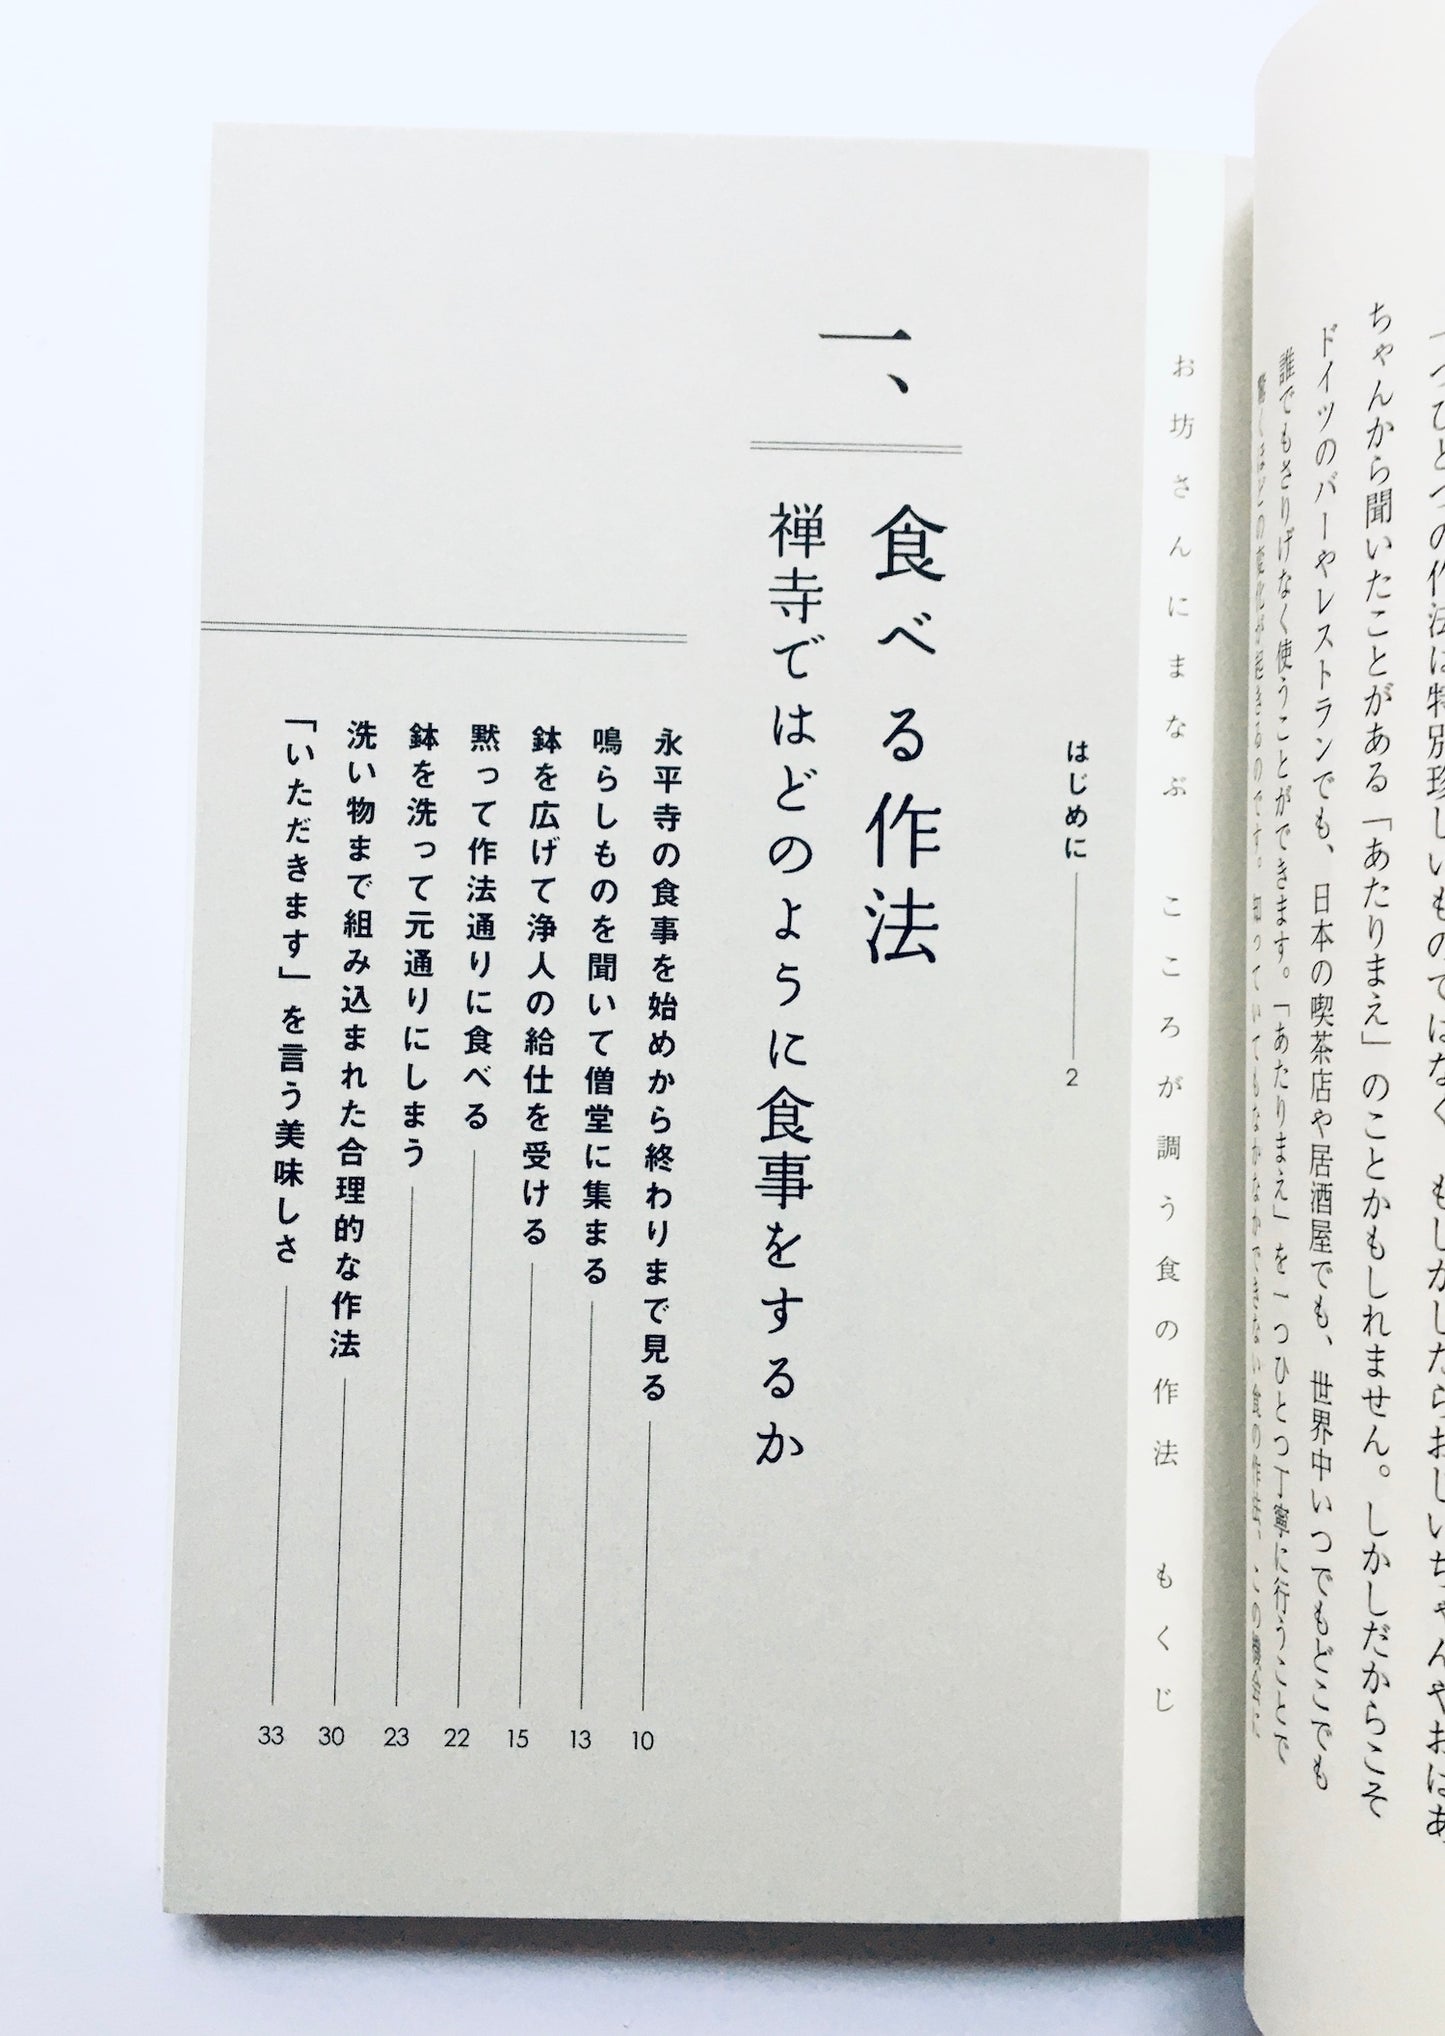 一つひとつの作法は特別珍しいものではなく、もしかしたらおじいちゃんやおばあ
ちゃんから聞いたことがある「あたりまえ」のことかもしれません。しかしだからこそ
ドイツのバーやレストランでも、日本の喫茶店や居酒屋でも、世界中いつでもどこでも
誰でもさりげなく使うことができます。「あたりまえ」を一つひとつ丁寧に行うことで
驚くほどの変化が起きるのです。知っていてもなかなかできない食の作法、この
お坊さんにまなぶ こころが調う食の作法 もくじ
はじめに 2
一、食べる作法
禅寺ではどのように食事をするか
永平寺の食事を始めから終わりまで見る 10
鳴らしものを聞いて僧堂に集まる 13
鉢を広げて浄人の給仕を受ける 15
黙って作法通りに食べる 22
鉢を洗って元通りにしまう 23
洗い物まで組み込まれた合理的な作法 30
「いただきます」を言う美味しさ 33